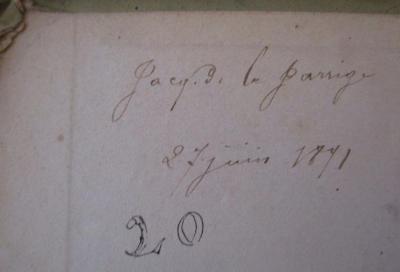 Jacq. de la Parrige
27 juin 1871
20